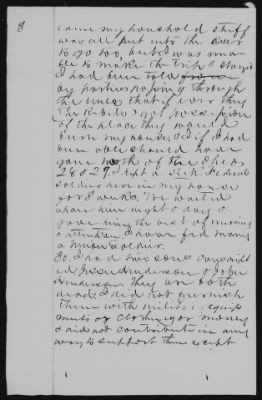 8
came my household stuff
was all put into the
to go too, but I was una-
ble to make the trip & stayed
I had been told
by parties passing through
the lines that if ever they
(The Rebels) got possession
of the place they would
burn my house, & if I had
been able should have
gone north of the Ohio
28 & 29. I kept a sick Federal
soldier here in my house
for weeks. We waited
upon him night & day &
gave him the best of nursing
& attention I have fed many
a Union soldier.
30. I had two sons conscript
ed Jesse Henderson & John
Henderson they are both
dead, I did not furnish
them with military equip
ments or clothing or money
& did not contribute in any
way to support them except